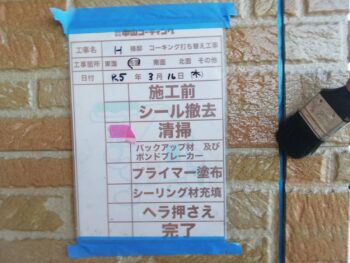 工事名 H 様邸 コーキング打ち替え工事
工事箇所 東面 西面 南面 北面 その他
日付 R.5 年 3 月 16 日 (木)
施工前
シール撤去
清掃
バックアップ材 及び
ボンドブレーカー
プライマー塗布
シーリング材充填
ヘラ押さえ
完了